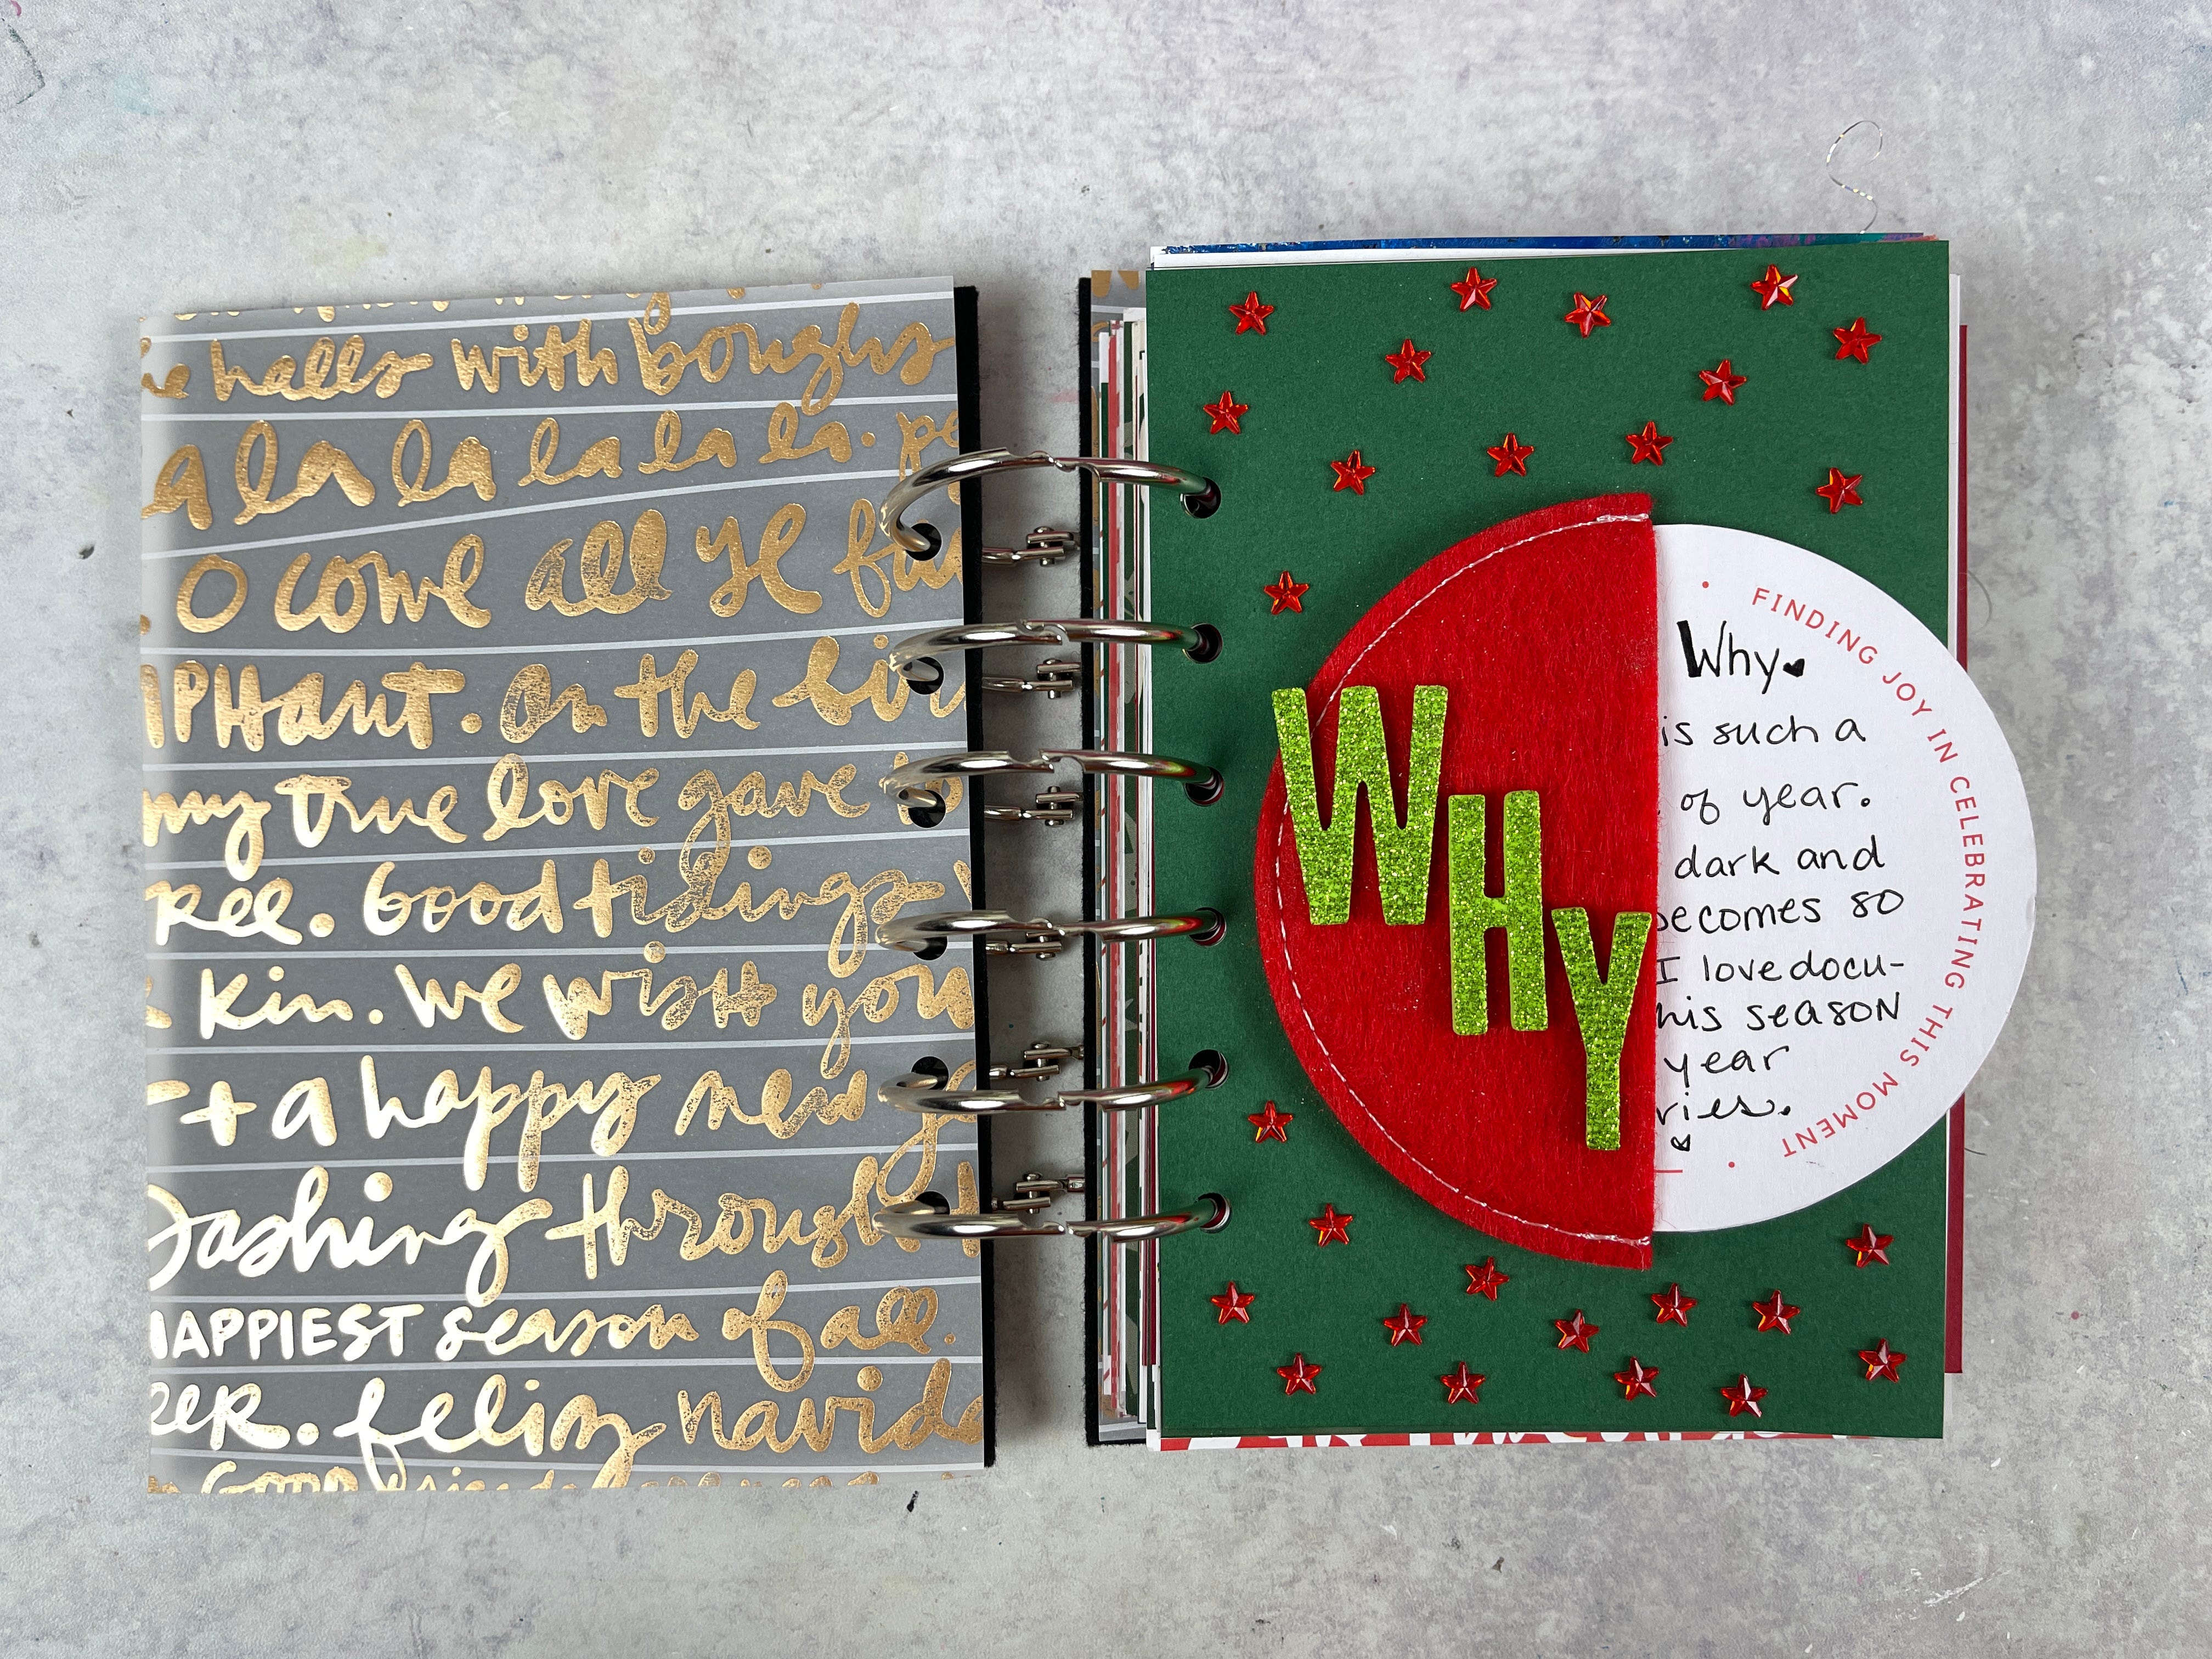 halls with boughs
la la la la la.
O come all ye
On the
my true love gave to
Good tidings
Kin. We wish you
+ a happy new
Dashing through
HAPPIEST season of all.
feliz navid
Good
WHY
Why
is such a
of year.
dark and
becomes so
I love docu-
his season
year
ries.
FINDING JOY IN CELEBRATING THIS MOMENT